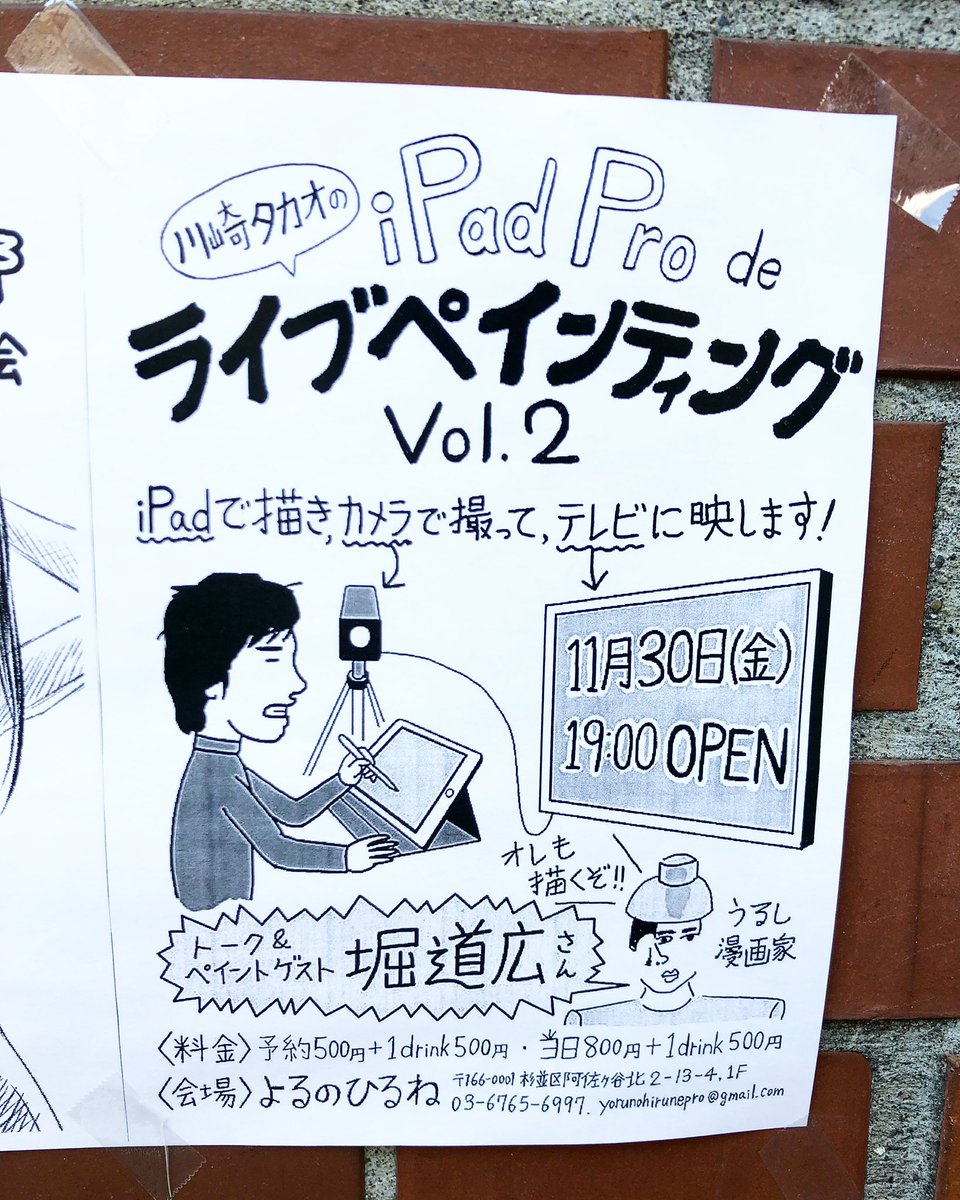 川崎タカオの
iPad Pro de
ライブペインティング
Vol.2
iPadで描き,カメラで撮って,テレビに映します!
11月30日(金)
19:00 OPEN
オレも
描くぞ!!
うるし
漫画家
トーク&
ペイントゲスト 堀道広さん
〈料金〉予約500円+1drink500円・当日800円+1drink500円
〈会場〉よるのひるね 〒166-0001 杉並区阿佐ヶ谷北2-13-4,1F
03-6765-6997. yorunohirunepro@gmail.com
会